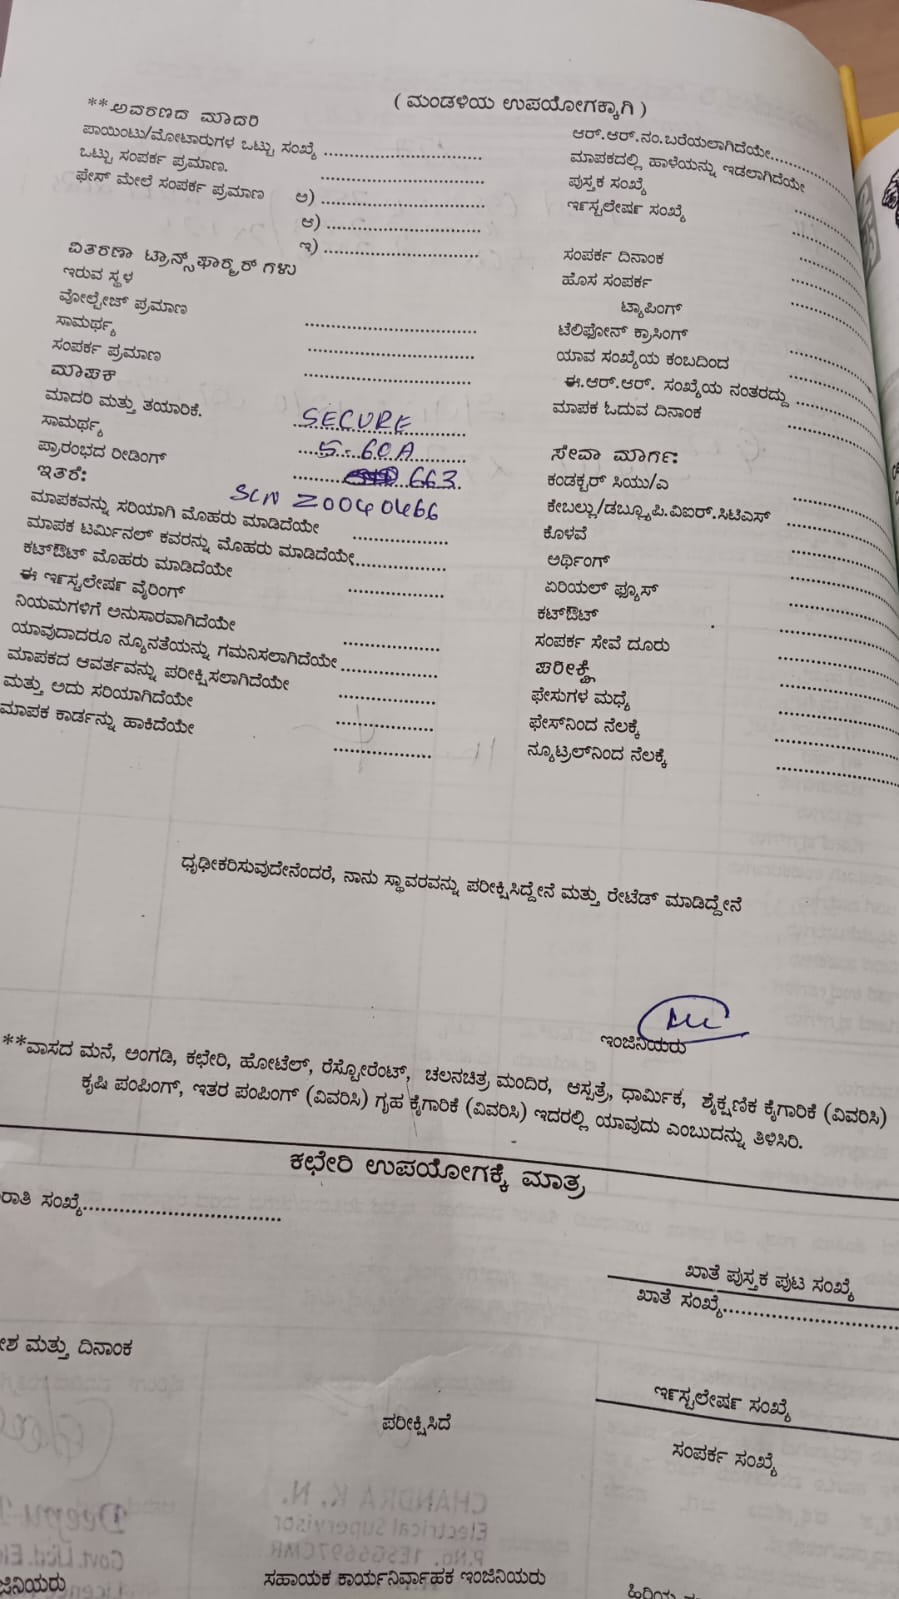 ( ಮಂಡಳಿಯ ಉಪಯೋಗಕ್ಕಾಗಿ )
**ಅವರಣದ ಮಾದರಿ
ಪಾಯಿಂಟು/ಮೋಟಾರುಗಳ ಒಟ್ಟು ಸಂಖ್ಯೆ ..............................
ಒಟ್ಟು ಸಂಪರ್ಕ ಪ್ರಮಾಣ. ..............................
ಫೇಸ್ ಮೇಲೆ ಸಂಪರ್ಕ ಪ್ರಮಾಣ ಅ) ..............................
ಆ) ..............................
ಇ) ..............................
ವಿತರಣಾ ಟ್ರಾನ್ಸ್‌ಫಾರ್ಮರ್ ಗಳು
ಇರುವ ಸ್ಥಳ
ವೋಲ್ಟೇಜ್ ಪ್ರಮಾಣ ..............................
ಸಾಮರ್ಥ್ಯ ..............................
ಸಂಪರ್ಕ ಪ್ರಮಾಣ ..............................
ಮಾಪಕ
ಮಾದರಿ ಮತ್ತು ತಯಾರಿಕೆ. SECURE
ಸಾಮರ್ಥ್ಯ 5-60A
ಪ್ರಾರಂಭದ ರೀಡಿಂಗ್ 663
ಇತರೆ: SCN Z0040466
ಮಾಪಕವನ್ನು ಸರಿಯಾಗಿ ಮೊಹರು ಮಾಡಿದೆಯೇ ....................
ಮಾಪಕ ಟರ್ಮಿನಲ್ ಕವರನ್ನು ಮೊಹರು ಮಾಡಿದೆಯೇ....................
ಕಟ್‌ಔಟ್ ಮೊಹರು ಮಾಡಿದೆಯೇ ....................
ಈ ಇನ್‌ಸ್ಟಲೇಷನ್ ವೈರಿಂಗ್
ನಿಯಮಗಳಿಗೆ ಅನುಸಾರವಾಗಿದೆಯೇ ....................
ಯಾವುದಾದರೂ ನ್ಯೂನತೆಯನ್ನು ಗಮನಿಸಲಾಗಿದೆಯೇ ....................
ಮಾಪಕದ ಆವರ್ತವನ್ನು ಪರೀಕ್ಷಿಸಲಾಗಿದೆಯೇ ....................
ಮತ್ತು ಅದು ಸರಿಯಾಗಿದೆಯೇ ....................
ಮಾಪಕ ಕಾರ್ಡನ್ನು ಹಾಕಿದೆಯೇ ....................
ಆರ್.ಆರ್.ನಂ.ಬರೆಯಲಾಗಿದೆಯೇ....................
ಮಾಪಕದಲ್ಲಿ ಹಾಳೆಯನ್ನು ಇಡಲಾಗಿದೆಯೇ
ಪುಸ್ತಕ ಸಂಖ್ಯೆ ....................
ಇನ್‌ಸ್ಟಲೇಷನ್ ಸಂಖ್ಯೆ ....................
ಸಂಪರ್ಕ ದಿನಾಂಕ ....................
ಹೊಸ ಸಂಪರ್ಕ ....................
ಟ್ಯಾಪಿಂಗ್ ....................
ಟೆಲಿಫೋನ್ ಕ್ರಾಸಿಂಗ್
ಯಾವ ಸಂಖ್ಯೆಯ ಕಂಬದಿಂದ ....................
ಈ.ಆರ್.ಆರ್. ಸಂಖ್ಯೆಯ ನಂತರದ್ದು ....................
ಮಾಪಕ ಓದುವ ದಿನಾಂಕ ....................
ಸೇವಾ ಮಾರ್ಗ:
ಕಂಡಕ್ಟರ್ ಸಿಯು/ಎ ....................
ಕೇಬಲ್ಲು/ಡಬ್ಲ್ಯೂಪಿ.ವಿಐರ್.ಸಿಟಿಎಸ್ ....................
ಕೊಳವೆ ....................
ಅರ್ಥಿಂಗ್ ....................
ಏರಿಯಲ್ ಫ್ಯೂಸ್ ....................
ಕಟ್‌ಔಟ್ ....................
ಸಂಪರ್ಕ ಸೇವೆ ದೂರು ....................
ಪರೀಕ್ಷೆ
ಫೇಸುಗಳ ಮಧ್ಯೆ ....................
ಫೇಸ್‌ನಿಂದ ನೆಲಕ್ಕೆ ....................
ನ್ಯೂಟ್ರಲ್‌ನಿಂದ ನೆಲಕ್ಕೆ ....................
ಧೃಢೀಕರಿಸುವುದೇನೆಂದರೆ, ನಾನು ಸ್ಥಾವರವನ್ನು ಪರೀಕ್ಷಿಸಿದ್ದೇನೆ ಮತ್ತು ರೇಟೆಡ್ ಮಾಡಿದ್ದೇನೆ
ಇಂಜಿನಿಯರು
**ವಾಸದ ಮನೆ, ಅಂಗಡಿ, ಕಛೇರಿ, ಹೋಟೆಲ್, ರೆಸ್ಟೋರೆಂಟ್, ಚಲನಚಿತ್ರ ಮಂದಿರ, ಆಸ್ಪತ್ರೆ, ಧಾರ್ಮಿಕ, ಶೈಕ್ಷಣಿಕ ಕೈಗಾರಿಕೆ (ವಿವರಿಸಿ)
ಕೃಷಿ ಪಂಪಿಂಗ್, ಇತರ ಪಂಪಿಂಗ್ (ವಿವರಿಸಿ) ಗೃಹ ಕೈಗಾರಿಕೆ (ವಿವರಿಸಿ) ಇದರಲ್ಲಿ ಯಾವುದು ಎಂಬುದನ್ನು ತಿಳಿಸಿರಿ.
ಕಛೇರಿ ಉಪಯೋಗಕ್ಕೆ ಮಾತ್ರ
ರಾತಿ ಸಂಖ್ಯೆ..............................
ಖಾತೆ ಪುಸ್ತಕ ಪುಟ ಸಂಖ್ಯೆ
ಖಾತೆ ಸಂಖ್ಯೆ..............................
ಶ ಮತ್ತು ದಿನಾಂಕ
ಇನ್‌ಸ್ಟಲೇಷನ್ ಸಂಖ್ಯೆ
ಪರೀಕ್ಷಿಸಿದೆ
ಸಂಪರ್ಕ ಸಂಖ್ಯೆ
ಜಿನಿಯರು
ಸಹಾಯಕ ಕಾರ್ಯನಿರ್ವಾಹಕ ಇಂಜಿನಿಯರು
ಹಿರಿಯ